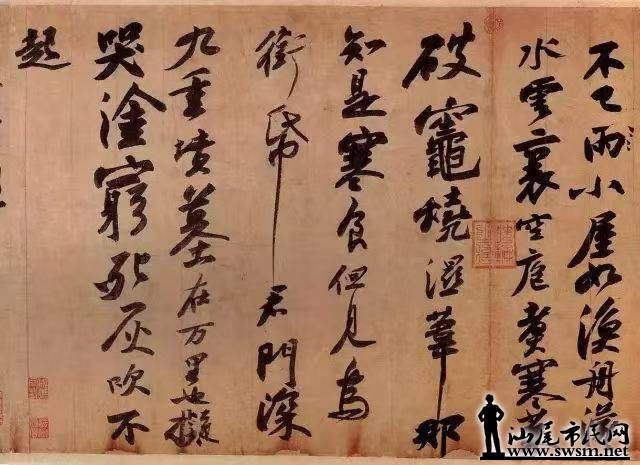 不已雨小屋如漁舟濛
水雲裏空庖煮寒菜
破竈燒濕葦那
知是寒食但見烏
銜帋君門深
九重墳墓在万里也擬
哭塗窮死灰吹不
起
汕尾市民网
www.swsm.net